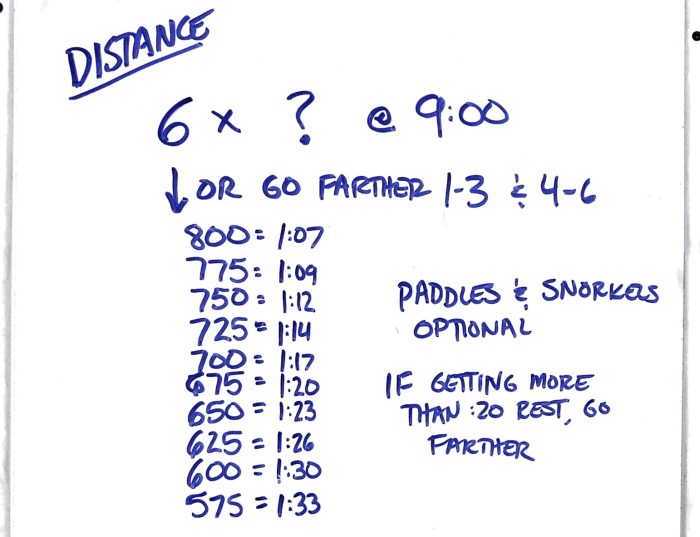 DISTANCE
6 x ? @ 9:00
↓ OR GO FARTHER 1-3 & 4-6
800 = 1:07
775 = 1:09
750 = 1:12
725 = 1:14
700 = 1:17
675 = 1:20
650 = 1:23
625 = 1:26
600 = 1:30
575 = 1:33
PADDLES & SNORKELS
OPTIONAL
IF GETTING MORE
THAN :20 REST, GO
FARTHER